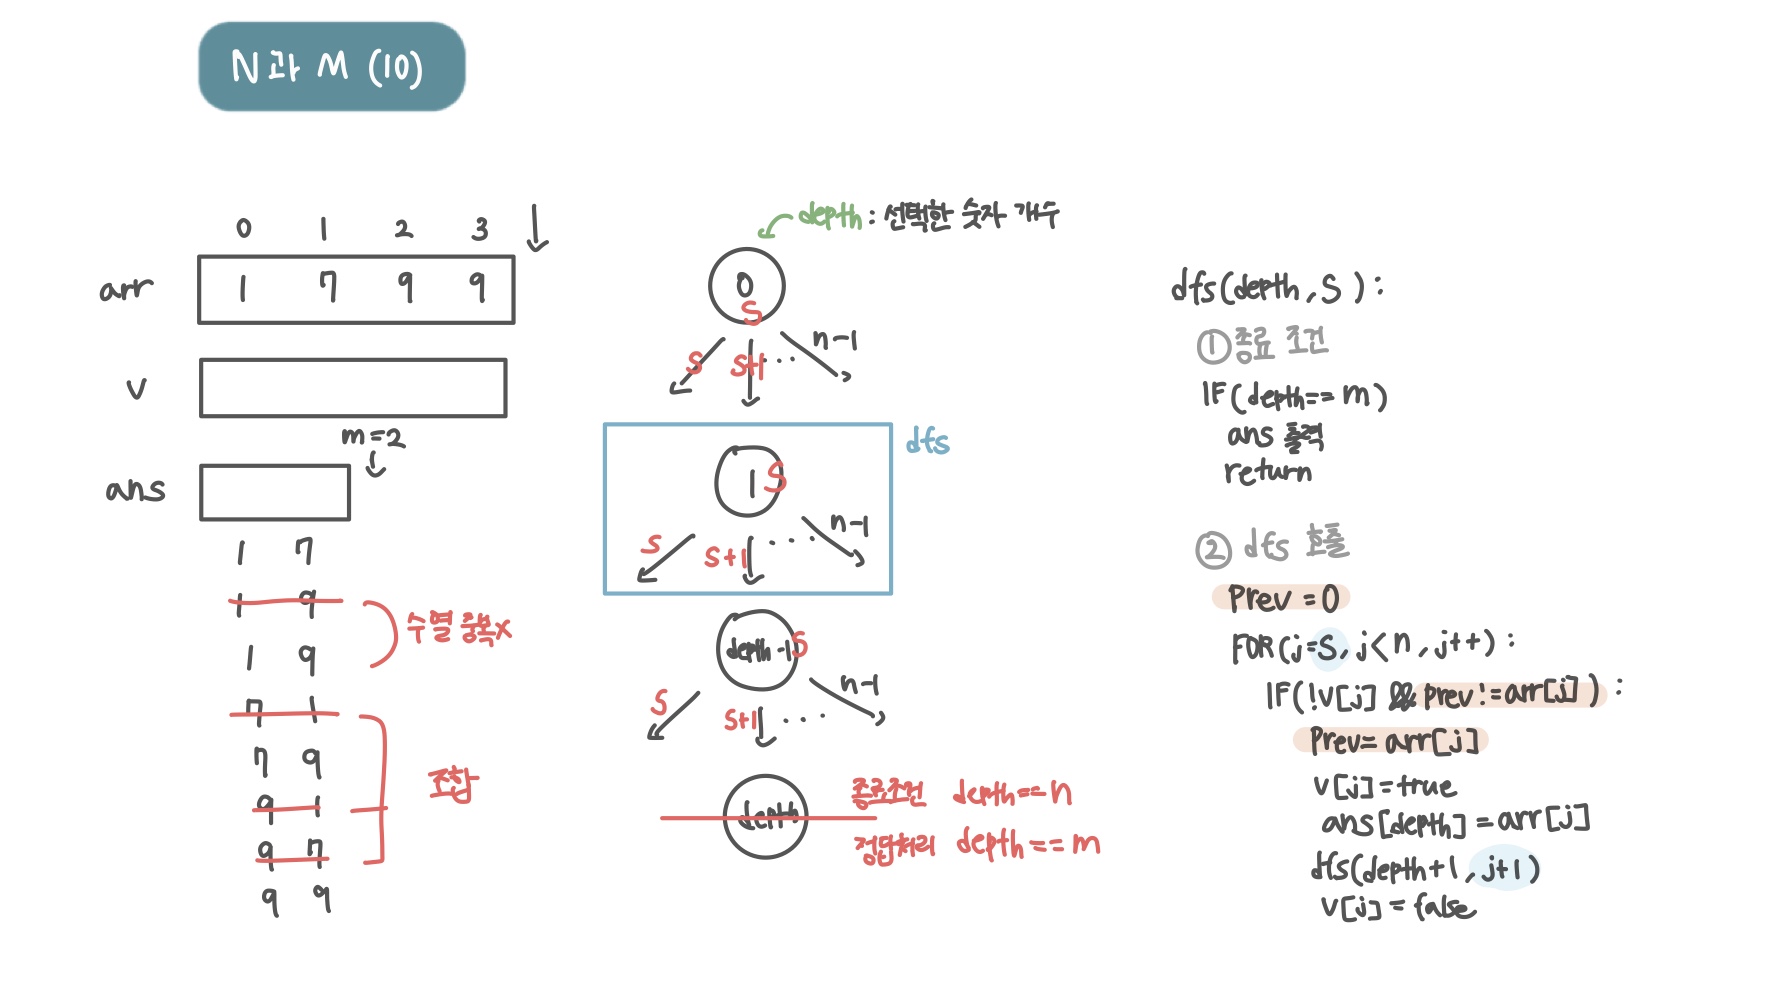 N과 M (10)
0 1 2 3
arr 1 7 9 9
v
m=2
ans
1 7
1 9
수열 중복x
1 9
7 1
7 9
조합
9 1
9 7
9 9
depth : 선택한 숫자 개수
0
S
S S+1 ... n-1
dfs
1 S
S S+1 .... n-1
depth-1 S
S S+1 .... n-1
depth
종료조건 depth==n
정답처리 depth==m
dfs(depth, S):
① 종료 조건
IF(depth==m)
ans 출력
return
② dfs 호출
Prev=0
FOR(j=S, j<n, j++):
IF(!v[j] && prev!=arr[j]):
Prev=arr[j]
v[j]=true
ans[depth]=arr[j]
dfs(depth+1, j+1)
v[j]=false